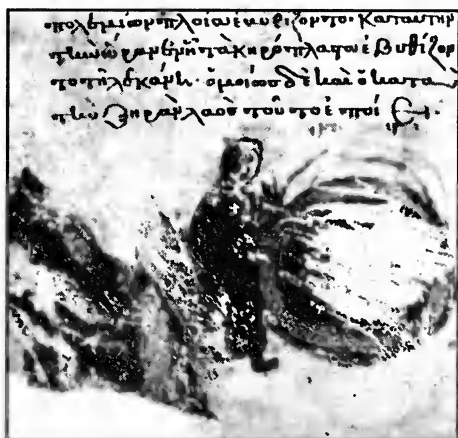 πολεμίων πλοῖα ἐκυρίζοντο· κατ αυτὴν
τὴν ὥραν ἐν ἧ τὰ κηρόπλαστα ἐβυθίζον
το τῆ λεκάνη· ὁμοίωσ δὲ καὶ ὁ κατα
τὴν ξηρὰν λαὸσ τοῦτο ἐποίει